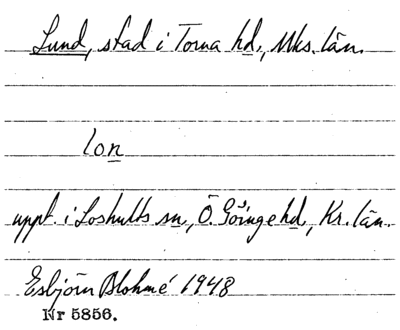 Lund, stad i Torna hd., Mks. län.
lon
uppt. i Loshults sn, Ö. Göinge hd, Kr. län.
Esbjörn Blohmé 1948
Nr 5856.